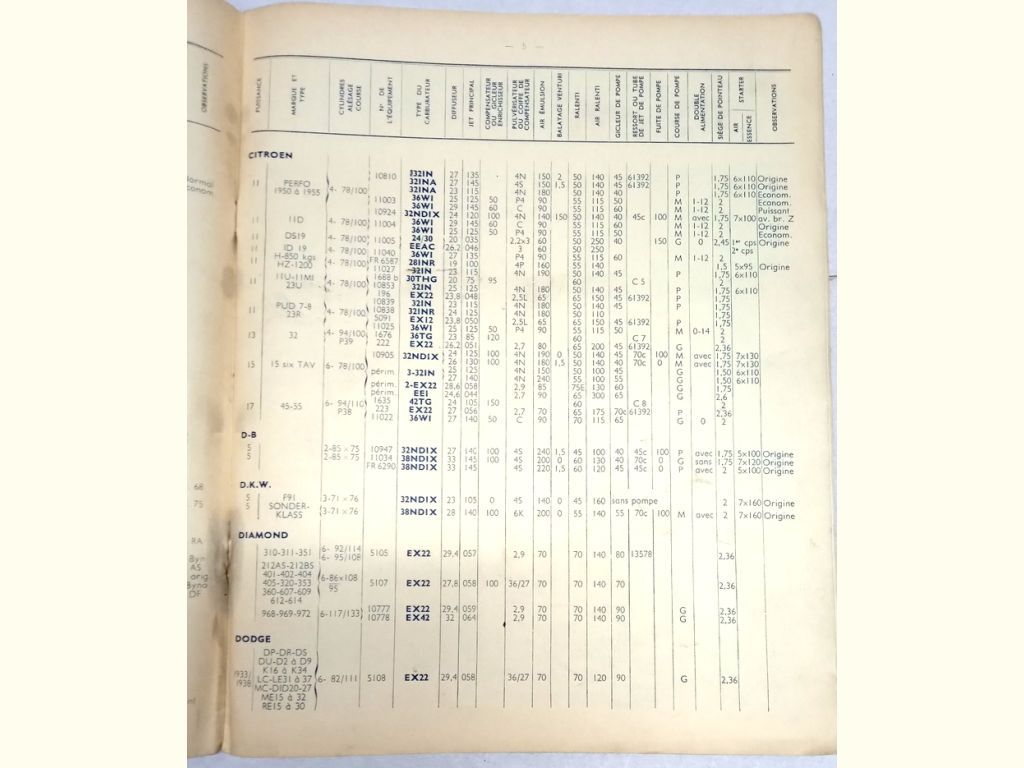 — 5 —
OBSERVATIONS
PUISSANCE
MARQUE ET TYPE
CYLINDRES ALÉSAGE COURSE
N° DE L'ÉQUIPEMENT
TYPE DU CARBURATEUR
DIFFUSEUR
JET PRINCIPAL
COMPENSATEUR OU GICLEUR ENRICHISSEUR
PULVÉRISATEUR OU COIFFE DE COMPENSATEUR
AIR ÉMULSION
BALAYAGE VENTURI
RALENTI
AIR RALENTI
GICLEUR DE POMPE
RESSORT OU TUBE DE JET DE POMPE
FUITE DE POMPE
COURSE DE POMPE
DOUBLE ALIMENTATION
SIÈGE DE POINTEAU
STARTER
AIR
ESSENCE
OBSERVATIONS
CITROEN
10810 32IN 27 135 4N 150 2 50 140 45 61392 P 1,75 6x110 Origine
11 PERFO 1950 à 1955 4- 78/100 32INA 27 145 4S 150 1,5 50 140 45 61392 P 1,75 6x110 Origine
32INA 23 115 4N 180 50 140 40 P 1,75 6x110 Econom.
11003 36WI 25 125 50 P4 90 55 115 50 M 1-12 2 Econom.
36WI 29 145 60 C 90 55 115 60 M 1-12 2 Puissant
10924 32NDIX 24 120 100 4N 140 150 50 140 40 45c 100 M avec 1,75 7x100 av. br. Z
11 11D 4- 78/100 11004 36WI 29 145 60 C 90 55 115 60 M 1-12 2 Origine
36WI 25 125 50 P4 90 55 115 50 M 1-12 2 Econom.
11 DS19 4- 78/100 11005 24/30 20 035 2,2x3 60 50 250 40 150 G 0 2,45 1er cps Origine
EEAC 26,2 046 3 60 50 250 2e cps
11 ID 19 4- 78/100 11040 36WI 27 125 P4 90 55 115 60 M 1-12 2
H-850 kgs HZ-1200 4- 78/100 FR 6587 28INR 19 100 4P 160 55 140 1,5 5x95 Origine
11027 32IN 23 115 4N 190 50 140 45 P 1,75 6x110
11 11U-11MI 23U 4- 78/100 1688 b 30THG 20 75 95 60 C 5 2
10853 32IN 25 125 4N 180 50 140 45 P 1,75 6x110
196 EX22 23,8 048 2,5L 65 65 150 45 61392 P 1,75
10839 32IN 23 115 4N 180 50 140 45 P 1,75
11 PUD 7-8 23R 4- 78/100 10838 32INR 24 125 4N 180 50 110 1,75
5091 EX12 23,8 050 2,5L 65 65 150 45 61392 P 1,75
11025 36WI 25 125 50 P4 90 55 115 50 M 0-14 2
13 32 4- 94/100 P39 1676 36TG 23 85 120 60 C 7 2
222 EX22 26,2 051 2,7 80 65 200 45 61392 G 2,36
10905 32NDIX 24 125 100 4N 190 0 50 140 45 70c 100 M avec 1,75 7x130
26 130 100 4N 180 1,5 50 140 40 70c 0 M avec 1,75 7x130
15 15 six TAV 6- 78/100 périm. 3-32IN 25 125 4N 150 50 100 45 G 1,50 6x110
27 140 4N 240 55 100 55 G 1,50 6x110
périm. 2-EX22 28,6 058 2,9 85 75E 130 60 G 1,75
périm. EE1 24,6 044 2,7 90 65 300 65 G 2,6
17 45-55 6- 94/110 P38 1635 42TG 24 105 150 60 C 8 2
223 EX22 27 056 2,7 70 65 175 70c 61392 P 2,36
11022 36WI 27 140 50 C 90 70 115 65 G 0 2
D-B
5 2-85 x 75 10947 32NDIX 27 140 100 4S 240 1,5 45 100 40 45c 100 P avec 1,75 5x100 Origine
5 2-85 x 75 11034 38NDIX 33 145 100 4S 200 0 60 130 40 70c 0 G sans 1,75 7x120 Origine
FR 6290 38NDIX 33 145 4S 220 1,5 60 120 45 45c 0 P avec 2 5x100 Origine
D.K.W.
5 F91 3-71 x 76 32NDIX 23 105 0 4S 140 0 45 160 sans pompe 2 7x160 Origine
5 SONDER-KLASS 3-71 x 76 38NDIX 28 140 100 6K 200 0 55 140 55 70c 100 M avec 2 7x160 Origine
DIAMOND
310-311-351 6- 92/114 6- 95/108 5105 EX22 29,4 057 2,9 70 70 140 80 13578 2,36
212AS-212BS
401-402-404
405-320-353 6-86x108 95 5107 EX22 27,8 058 100 36/27 70 70 140 70 2,36
360-607-609
612-614
968-969-972 6-117/133 10777 EX22 29,4 059 2,9 70 70 140 90 G 2,36
10778 EX42 32 064 2,9 70 70 140 90 G 2,36
DODGE
DP-DR-DS
DU-D2 à D9
K16 à K34
1933/1938 LC-LE31 à 37 6- 82/111 5108 EX22 29,4 058 36/27 70 70 120 90 G 2,36
MC-DID20-27
ME15 à 32
RE15 à 30
68
75
RA
AS
DF